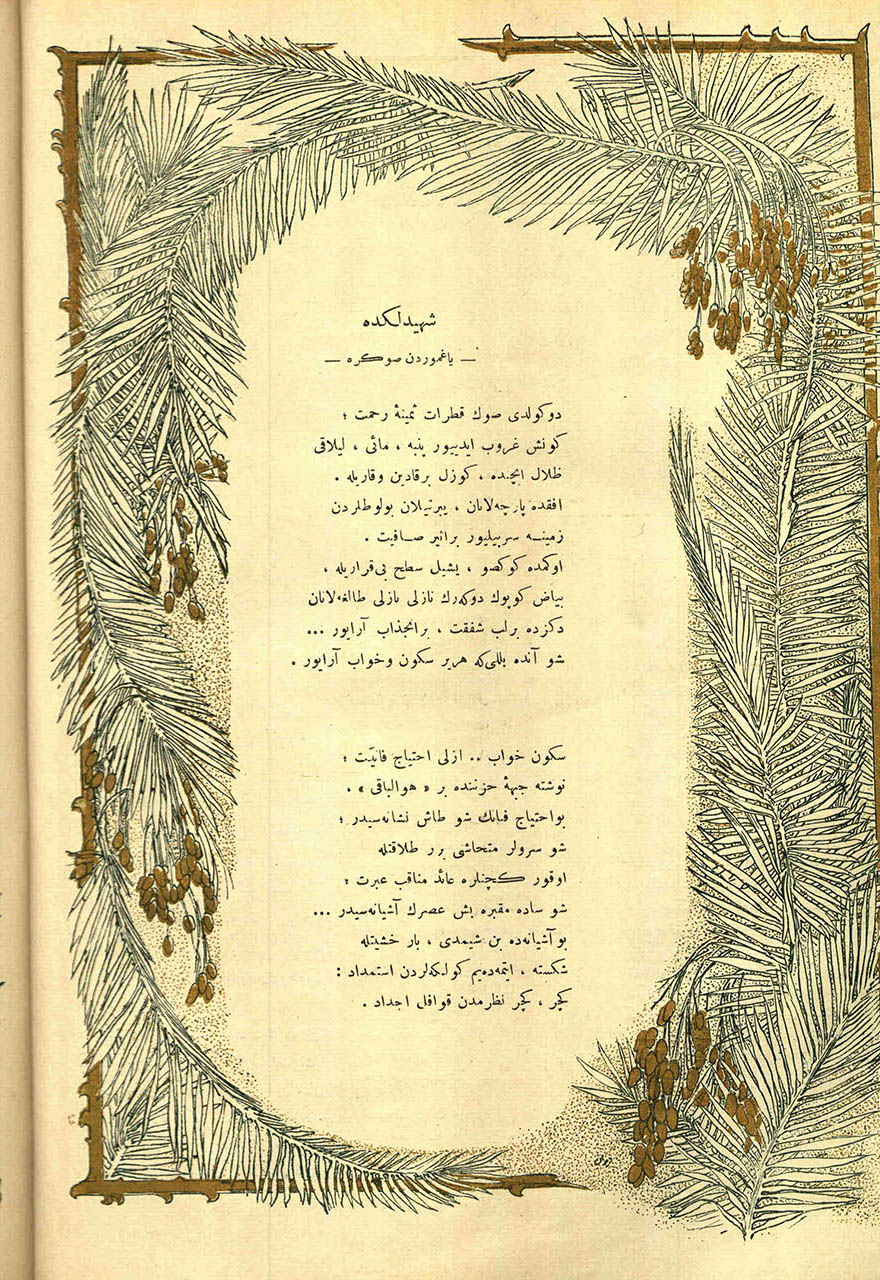 شهیدلکده
— یاغموردن صوکره —
دوکولدی صوك قطرات ثمینهٔ رحمت ؛
کونش غروب ایدییور پنبه ، مائی ، لیلاقی
ظلال ایچنده ، کوزل برقادین وقاریله .
افقده پارچه‌لانان ، ییرتیلان بولوطلردن
زمینـه سرپیلیور براثیر صـافیت .
اوکمده کوکصو ، یشیل سطح بی‌قراریله ،
بیاض کوپوك دوکەرك نازلی نازلی طالغه‌لانان
دکزده برلب شفقت ، برانجذاب آرایور ...
شو آنده بللی‌که هربر سکون وخواب آرایور .
سکون خواب .. ازلی احتیاج فانیّت ؛
نوشته جبههٔ حزننده بر « هوالباقی » ،
بواحتیاج فنانك شو طاش نشانه‌سیدر ؛
شو سرولر متحاشی برر طلاقتله
اوقور کچنلره عائد مناقب عبرت ؛
شو ساده مقبره بش عصرك آشیانه‌سیدر ...
بوآشیانه‌ده بن شیمدی ، بار خشیتله
شکسته ، ایتمه‌ده‌یم کولکه‌لردن استمداد :
کچر ، کچر نظرمدن قوافل اجداد .